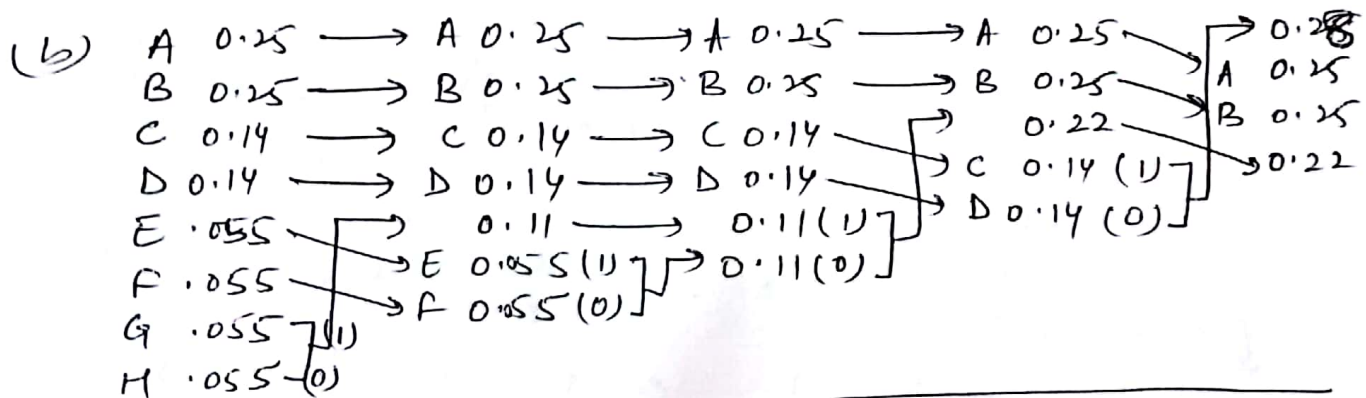 (b) A 0.25 → A 0.25 → A 0.25 → A 0.25 → 0.28
B 0.25 → B 0.25 → B 0.25 → B 0.25 A 0.25
C 0.14 → C 0.14 → C 0.14 0.22 B 0.25
D 0.14 → D 0.14 → D 0.14 C 0.14 (1) 0.22
E .055 0.11 → 0.11 (1) D 0.14 (0)
F .055 E 0.055 (1) 0.11 (0)
G .055 (1) F 0.055 (0)
H .055 (0)